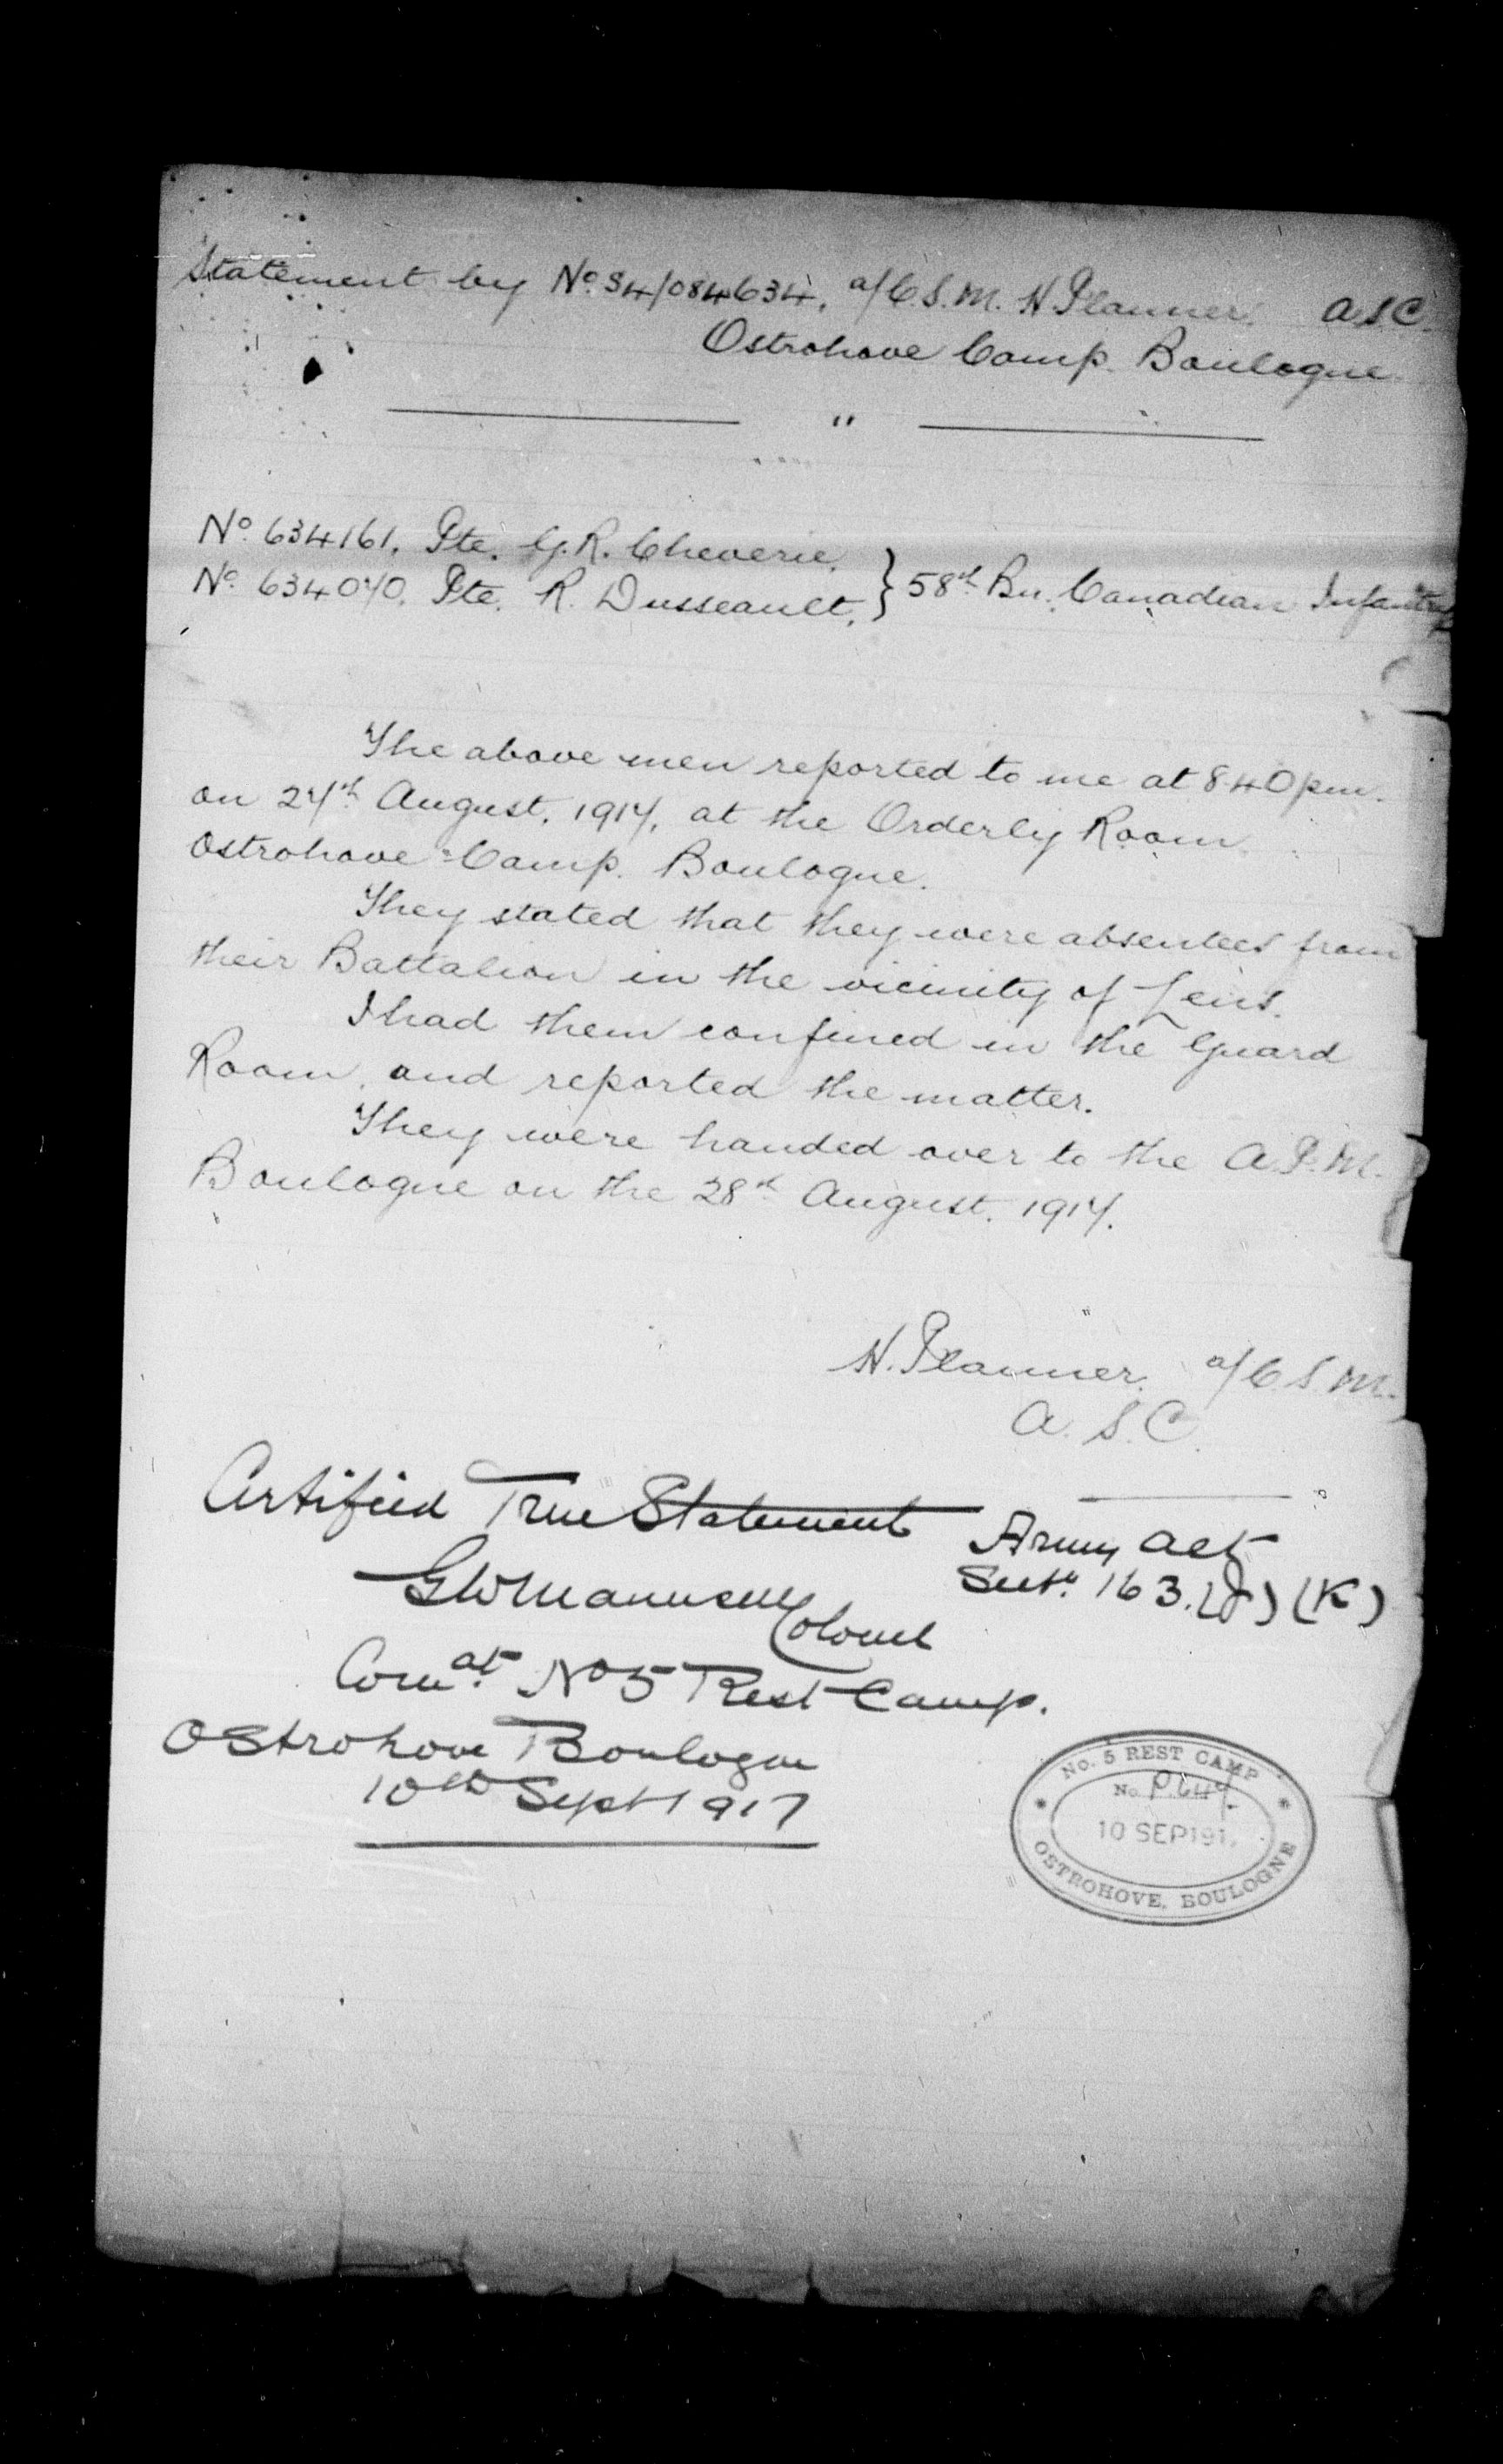 Statement by No. S4/084634, a/C.S.M. H Planner. A.S.C.
Ostrohove Camp. Boulogne.
"
No. 634161, Pte. G.R. Cheverie,
No. 634070, Pte. R. Dusseault, } 58th Bn. Canadian Infantry
The above men reported to me at 8.40 pm.
on 27th August, 1917, at the Orderly Room
Ostrohove Camp. Boulogne.
They stated that they were absentees from
their Battalion in the vicinity of Lens.
I had them confined in the Guard
Room, and reported the matter.
They were handed over to the A.P.M.
Boulogne on the 28th August, 1917.
H. Planner. a/C.S.M.
A.S.C.
Certified True Statement
Army Act
Sect. 163. (J) (K)
Colonel
Comdt. No 5 Rest Camp.
Ostrohove Boulogne
10th Sept 1917
No. 5 REST CAMP
No.
10 SEP 191
OSTROHOVE, BOULOGNE